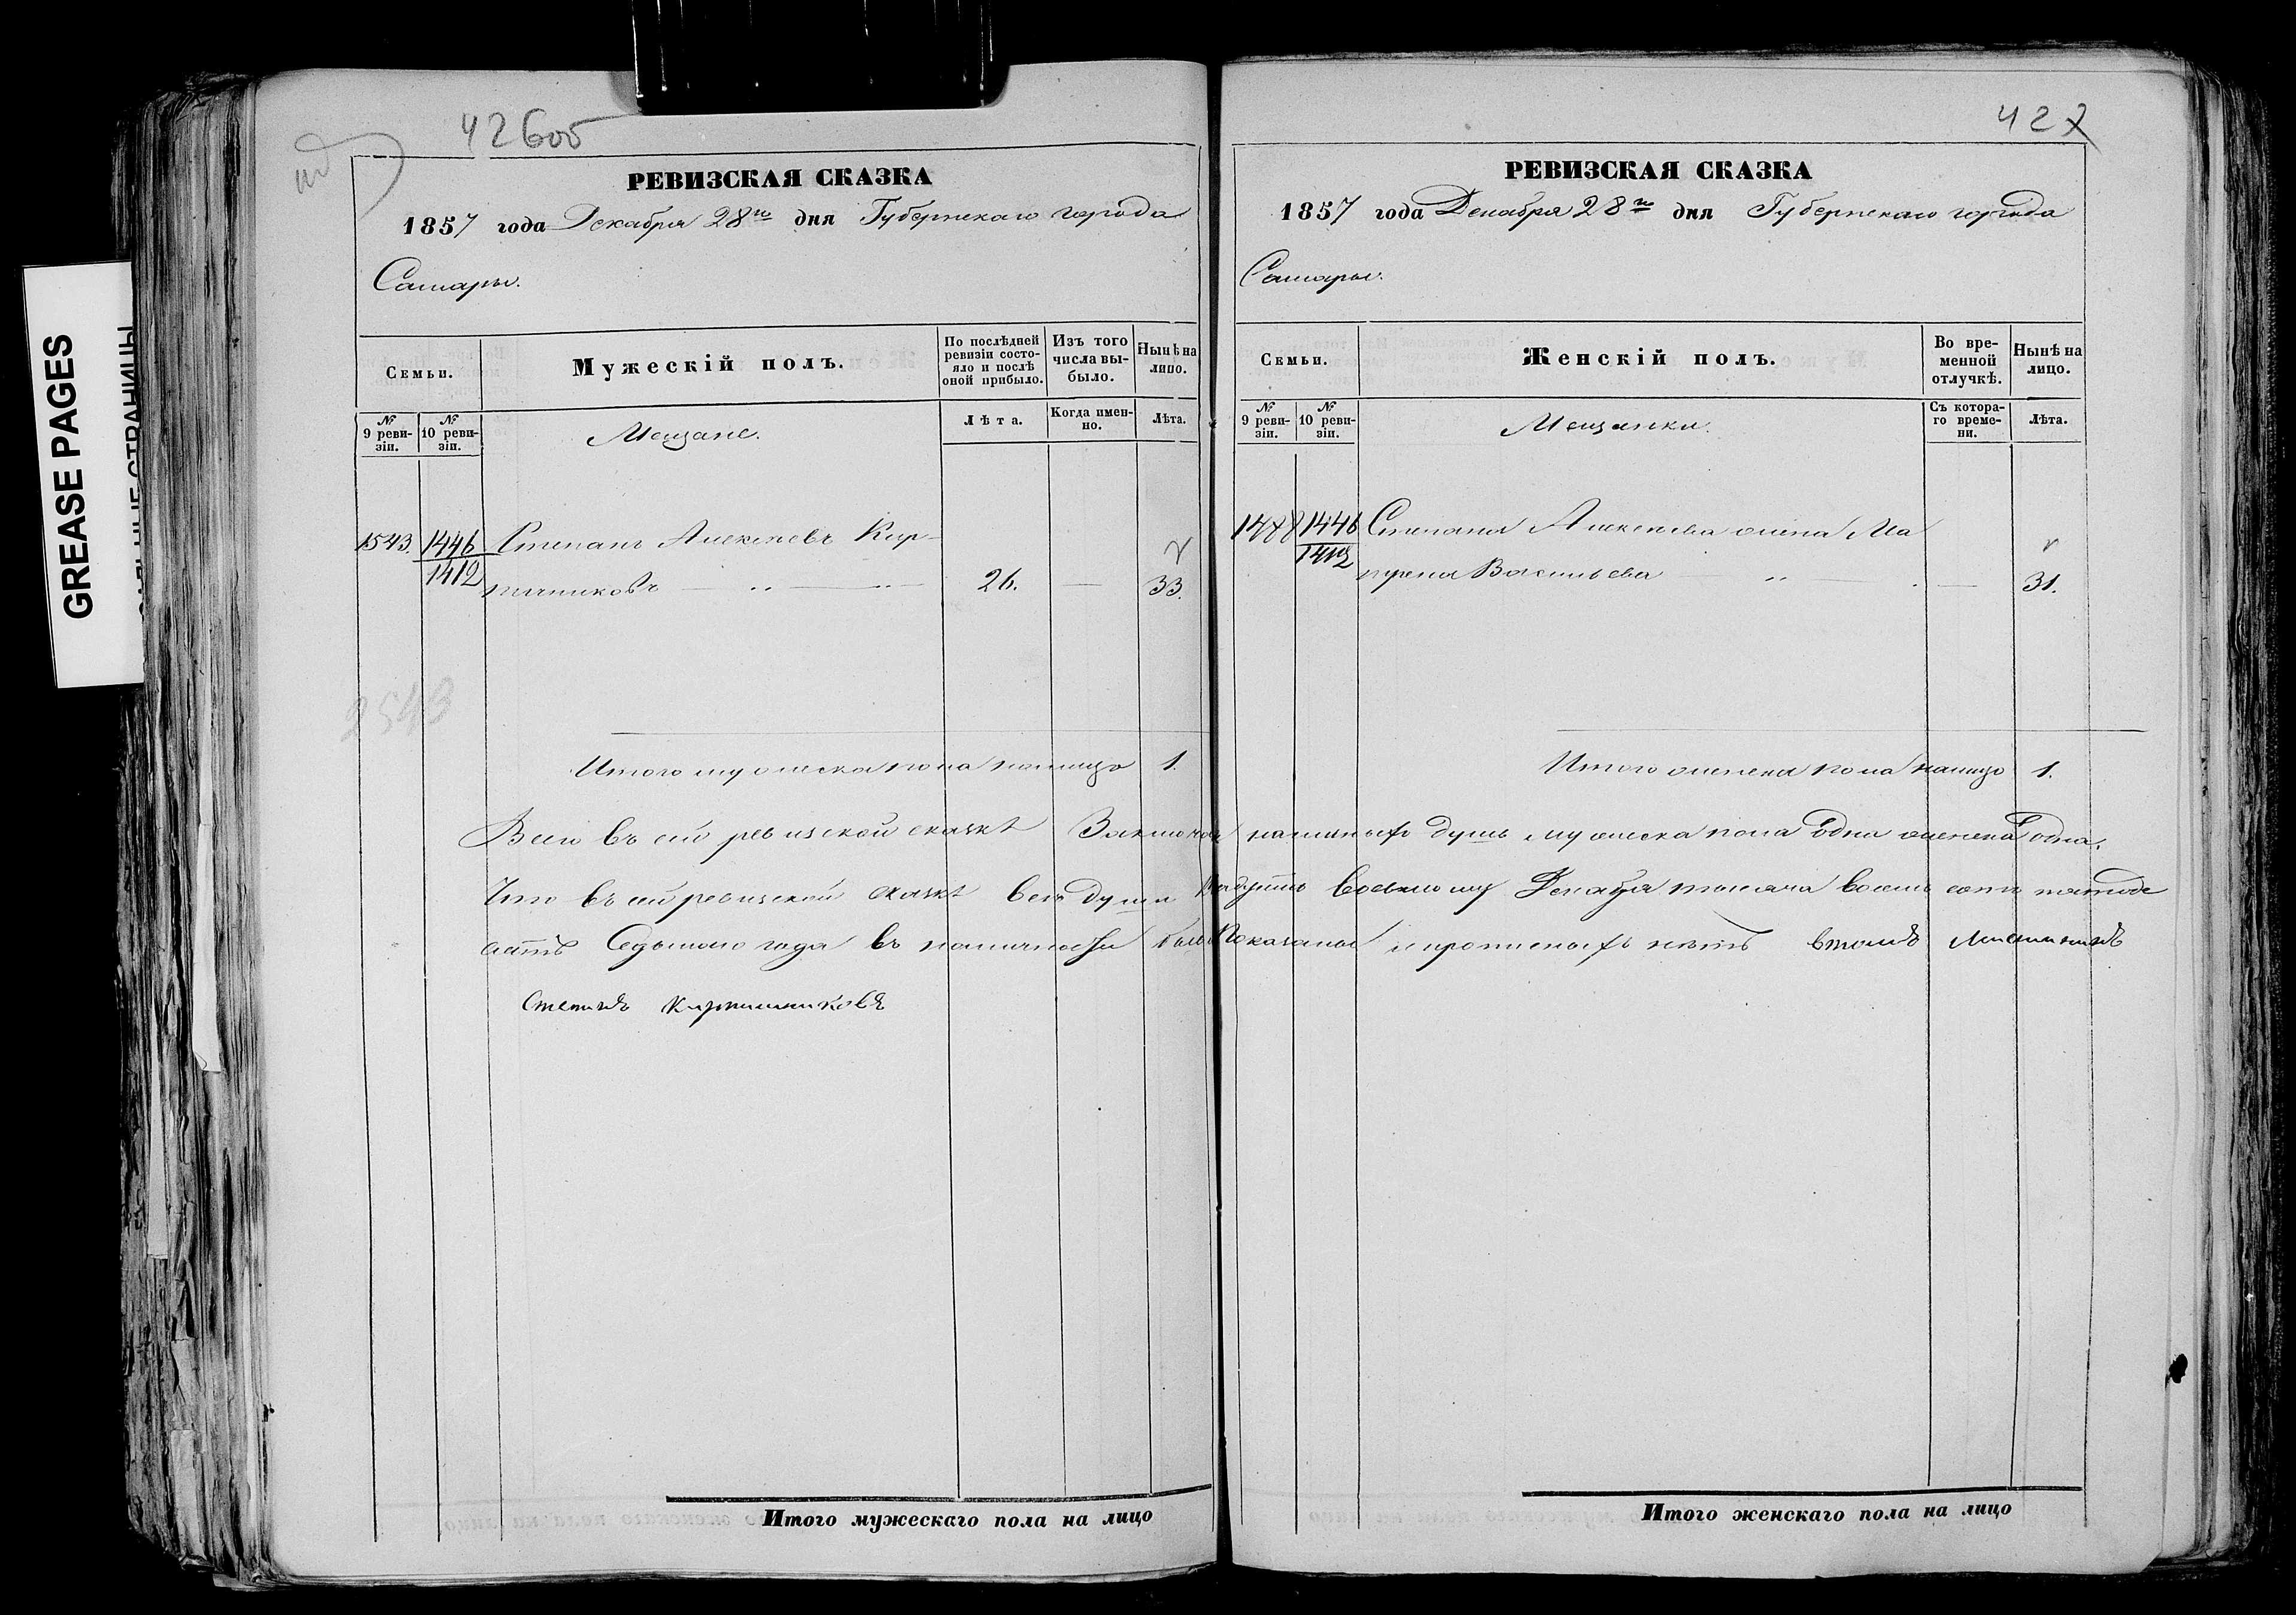 426об
РЕВИЗСКАЯ СКАЗКА
1857 года Декабря 28го дня Губернскаго города
Самары.
Семьи.
Мужескій полъ.
По послѣдней ревизіи состояло и послѣ оной прибыло.
Изъ того числа выбыло.
Нынѣ на лицо.
№ 9 ревизіи.
№ 10 ревизіи.
Мещане.
Лѣта.
Когда именно.
Лѣта.
1543. 1446 Степанъ Алексѣевъ Кир-
1412 пичниковъ 26. — 33.
2543
Итого мужеска пола налицо 1.
427
РЕВИЗСКАЯ СКАЗКА
1857 года Декабря 28го дня Губернскаго города
Самары.
Семьи.
Женскій полъ.
Во временной отлучкѣ.
Нынѣ на лицо.
№ 9 ревизіи.
№ 10 ревизіи.
Мещанки.
Съ котораго времени.
Лѣта.
1446 Степана Алексѣева жена Ма
1412 трена Васильева — 31.
Итого женска пола налицо 1.
Всего въ сей ревизской сказкѣ Заключая наличныхъ душъ мужеска пола одна женска одна.
Что въ сей ревизской сказкѣ всѣ души Декабря тысяча восемь сотъ пятьде
сятъ Седьмого года въ наличности Показаны и прописныхъ нѣтъ втомъ Мещанинъ
Степанъ Кирпишниковъ
Итого мужескаго пола на лицо
Итого женскаго пола на лицо
GREASE PAGES